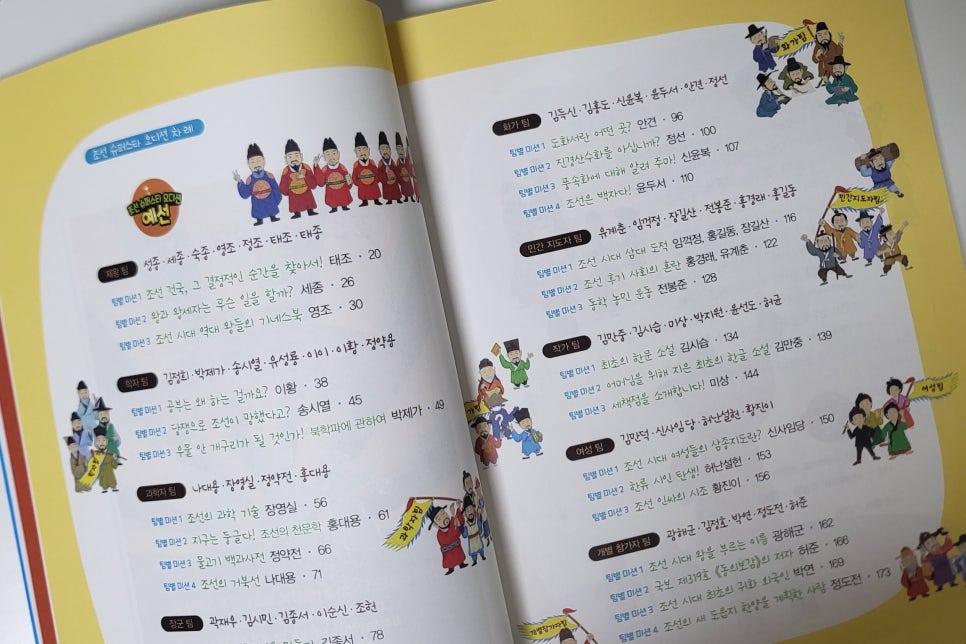 조선 슈퍼스타 오디션 차례
조선 슈퍼스타 오디션
예선
제왕 팀 성종·세종·숙종·영조·정조·태조·태종
팀별 미션 1 조선 건국, 그 결정적인 순간을 찾아서! 태조·20
팀별 미션 2 왕과 왕세자는 무슨 일을 할까? 세종·26
팀별 미션 3 조선 시대 역대 왕들의 기네스북 영조·30
학자 팀 김정희·박제가·송시열·유성룡·이이·이황·정약용
팀별 미션 1 공부는 왜 하는 걸까요? 이황·38
팀별 미션 2 당쟁으로 조선이 망했다고? 송시열·45
팀별 미션 3 우물 안 개구리가 될 것인가! 북학파에 관하여 박제가·49
과학자 팀 나대용·장영실·정약전·홍대용
팀별 미션 1 조선의 과학 기술 장영실·56
팀별 미션 2 지구는 둥글다! 조선의 천문학 홍대용·61
팀별 미션 3 물고기 백과사전 정약전·66
팀별 미션 4 조선의 거북선 나대용·71
장군 팀 곽재우·김시민·김종서·이순신·조헌
김종서·78
학자팀
과학자팀
화가팀
화가 팀 김득신·김홍도·신윤복·윤두서·안견·정선
팀별 미션 1 도화서란 어떤 곳? 안견·96
팀별 미션 2 진경산수화를 아십니까? 정선·100
팀별 미션 3 풍속화에 대해 알려 주마! 신윤복·107
팀별 미션 4 조선은 백자다! 윤두서·110
민간지도자팀
민간 지도자 팀 유계춘·임꺽정·장길산·전봉준·홍경래·홍길동
팀별 미션 1 조선 시대 삼대 도적 임꺽정, 홍길동, 장길산·116
팀별 미션 2 조선 후기 사회의 혼란 홍경래, 유계춘·122
팀별 미션 3 동학 농민 운동 전봉준·128
작가 팀 김만중·김시습·미상·박지원·윤선도·허균
팀별 미션 1 최초의 한문 소설 김시습·134
팀별 미션 2 어머님을 위해 지은 최초의 한글 소설 김만중·139
팀별 미션 3 세책점을 소개합니다! 미상·144
여성팀
여성 팀 김만덕·신사임당·허난설헌·황진이
팀별 미션 1 조선 시대 여성들의 삼종지도란? 신사임당·150
팀별 미션 2 한류 시인 탄생! 허난설헌·153
팀별 미션 3 조선 인싸의 시조 황진이·156
개별 참가자 팀 광해군·김정호·박연·정도전·허준
팀별 미션 1 조선 시대 왕을 부르는 이름 광해군·162
팀별 미션 2 국보 제319호 《동의보감》의 저자 허준·166
팀별 미션 3 조선 시대 최초의 귀화 외국인 박연·169
팀별 미션 4 조선의 새 도읍지 한양을 계획한 사람 정도전·173
개별참가자팀